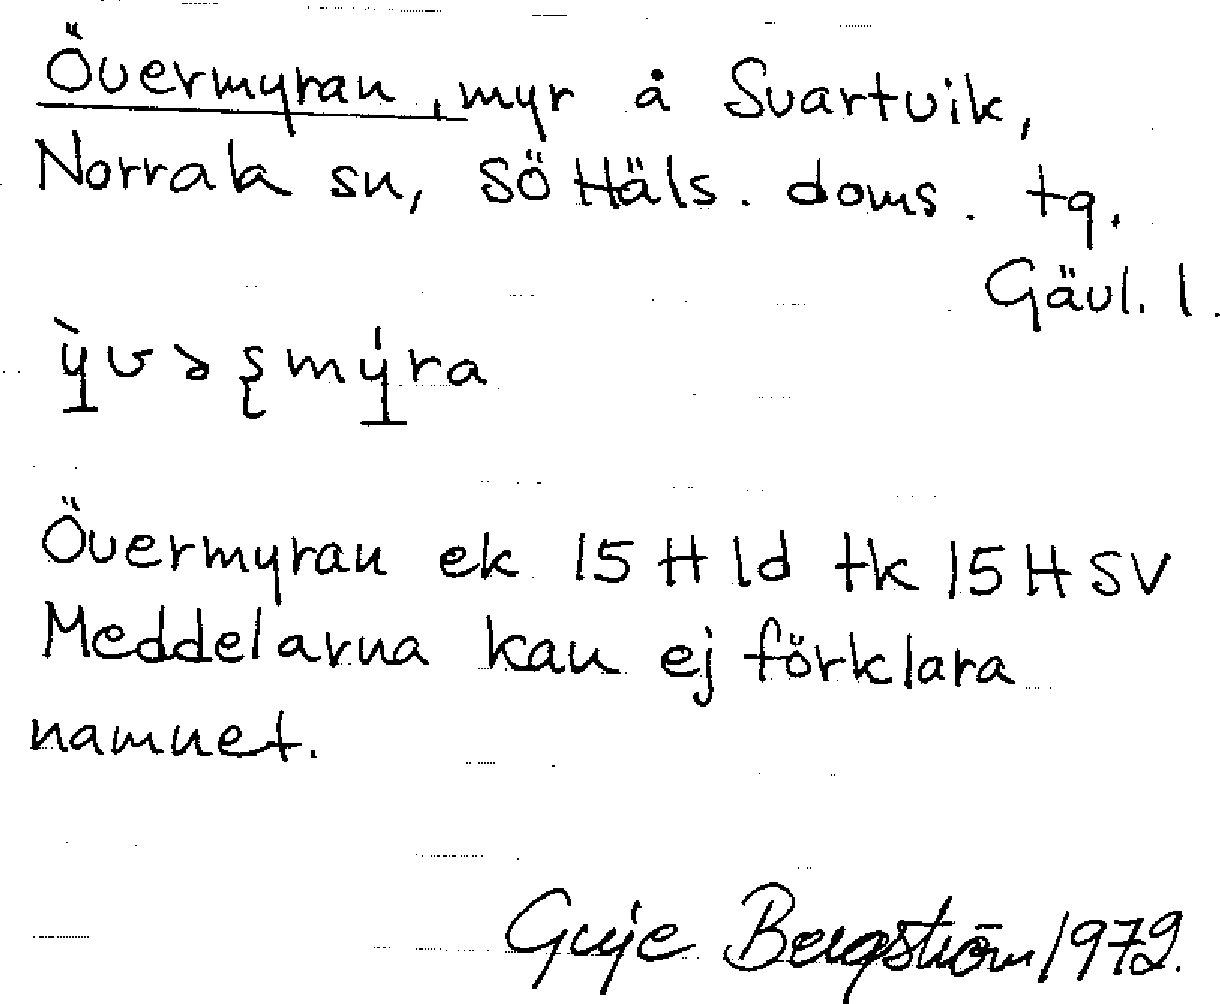 Övermyran, myr å Svartvik,
Norrala sn, SÖ Häls. doms. tg.
Gävl. l.
Övermyran ek 15 H 1d tk 15 H SV
Meddelarna kan ej förklara
namnet.
Bergström 1972.